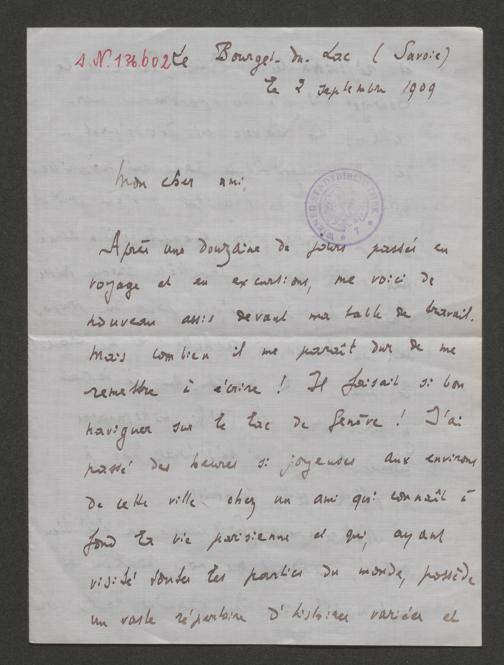 J.N. 136602
Le Bourget-du-Lac (Savoie)
le 2 septembre 1909
WIENER STADTBIBLIOTHEK
Mon cher ami
Après une douzaine de jours passés en
voyage et en excursions, me voici de
nouveau assis devant ma table de travail.
Mais combien il me paraît dur de me
remettre à écrire ! Il faisait si bon
naviguer sur le Lac de Genève ! J'ai
passé des heures si joyeuses aux environs
de cette ville chez un ami qui connaît à
fond la vie parisienne et qui, ayant
visité toutes les parties du monde, possède
un vaste répertoire d'histoires variées et